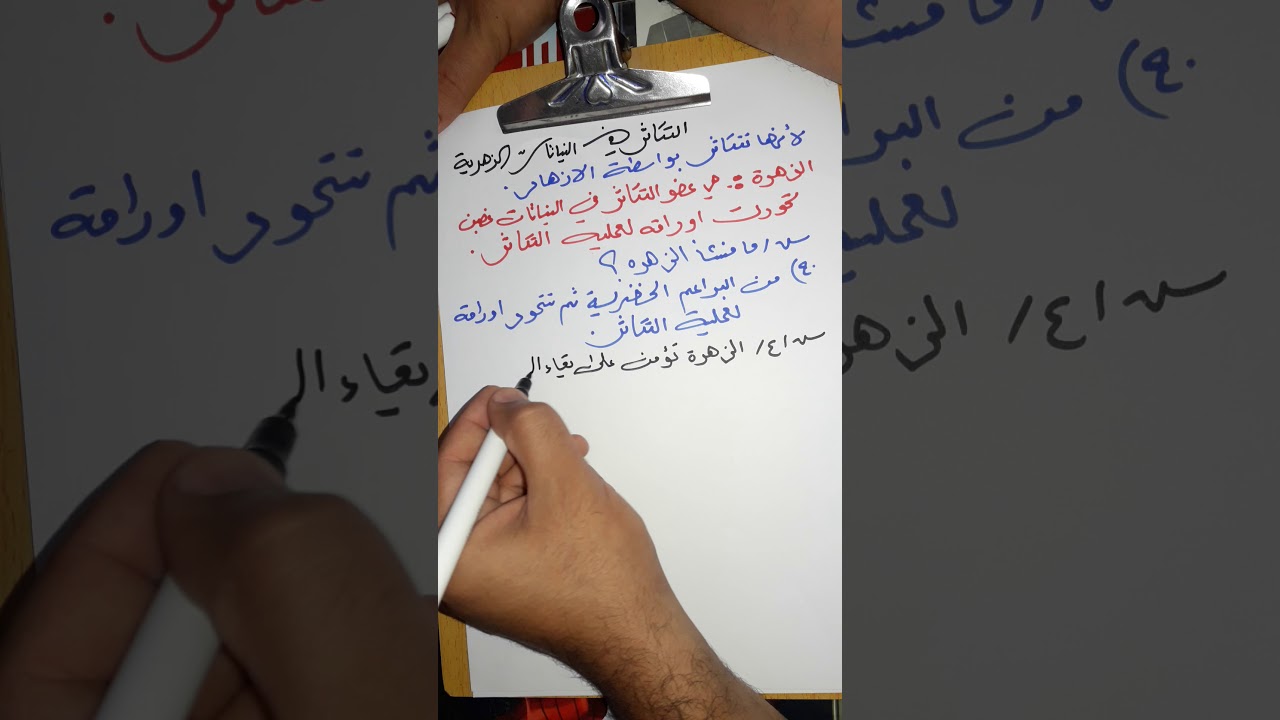 التكاثر في النباتات الزهرية
لأنها تتكاثر بواسطة الازهار.
الزهرة :- هي عضو التكاثر في النباتات غصن
تحورت اوراقه لعملية التكاثر.
س/ ما منشأ الزهره ؟
ج) من البراعم الخضرية ثم تتحور اوراقة
لعملية التكاثر.
س ا ع/ الزهرة تؤمن على بقاء ال